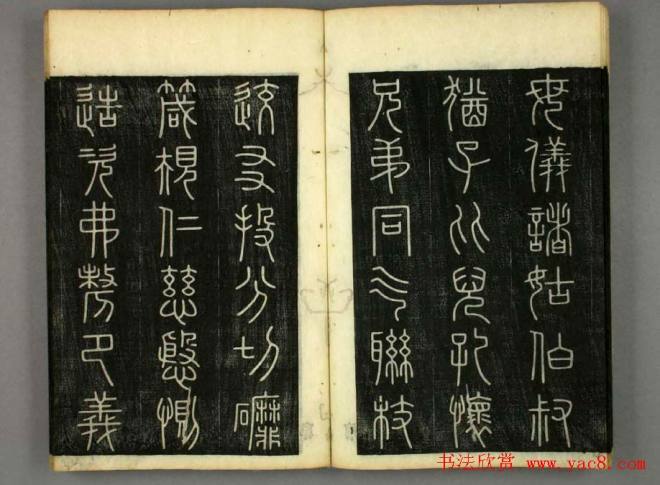 母儀諸姑伯叔
猶子比兒孔懷
兄弟同气聯枝
交友投分切磨
箴規仁慈隱惻
造次弗離卪義
书法欣赏 www.yac8.com